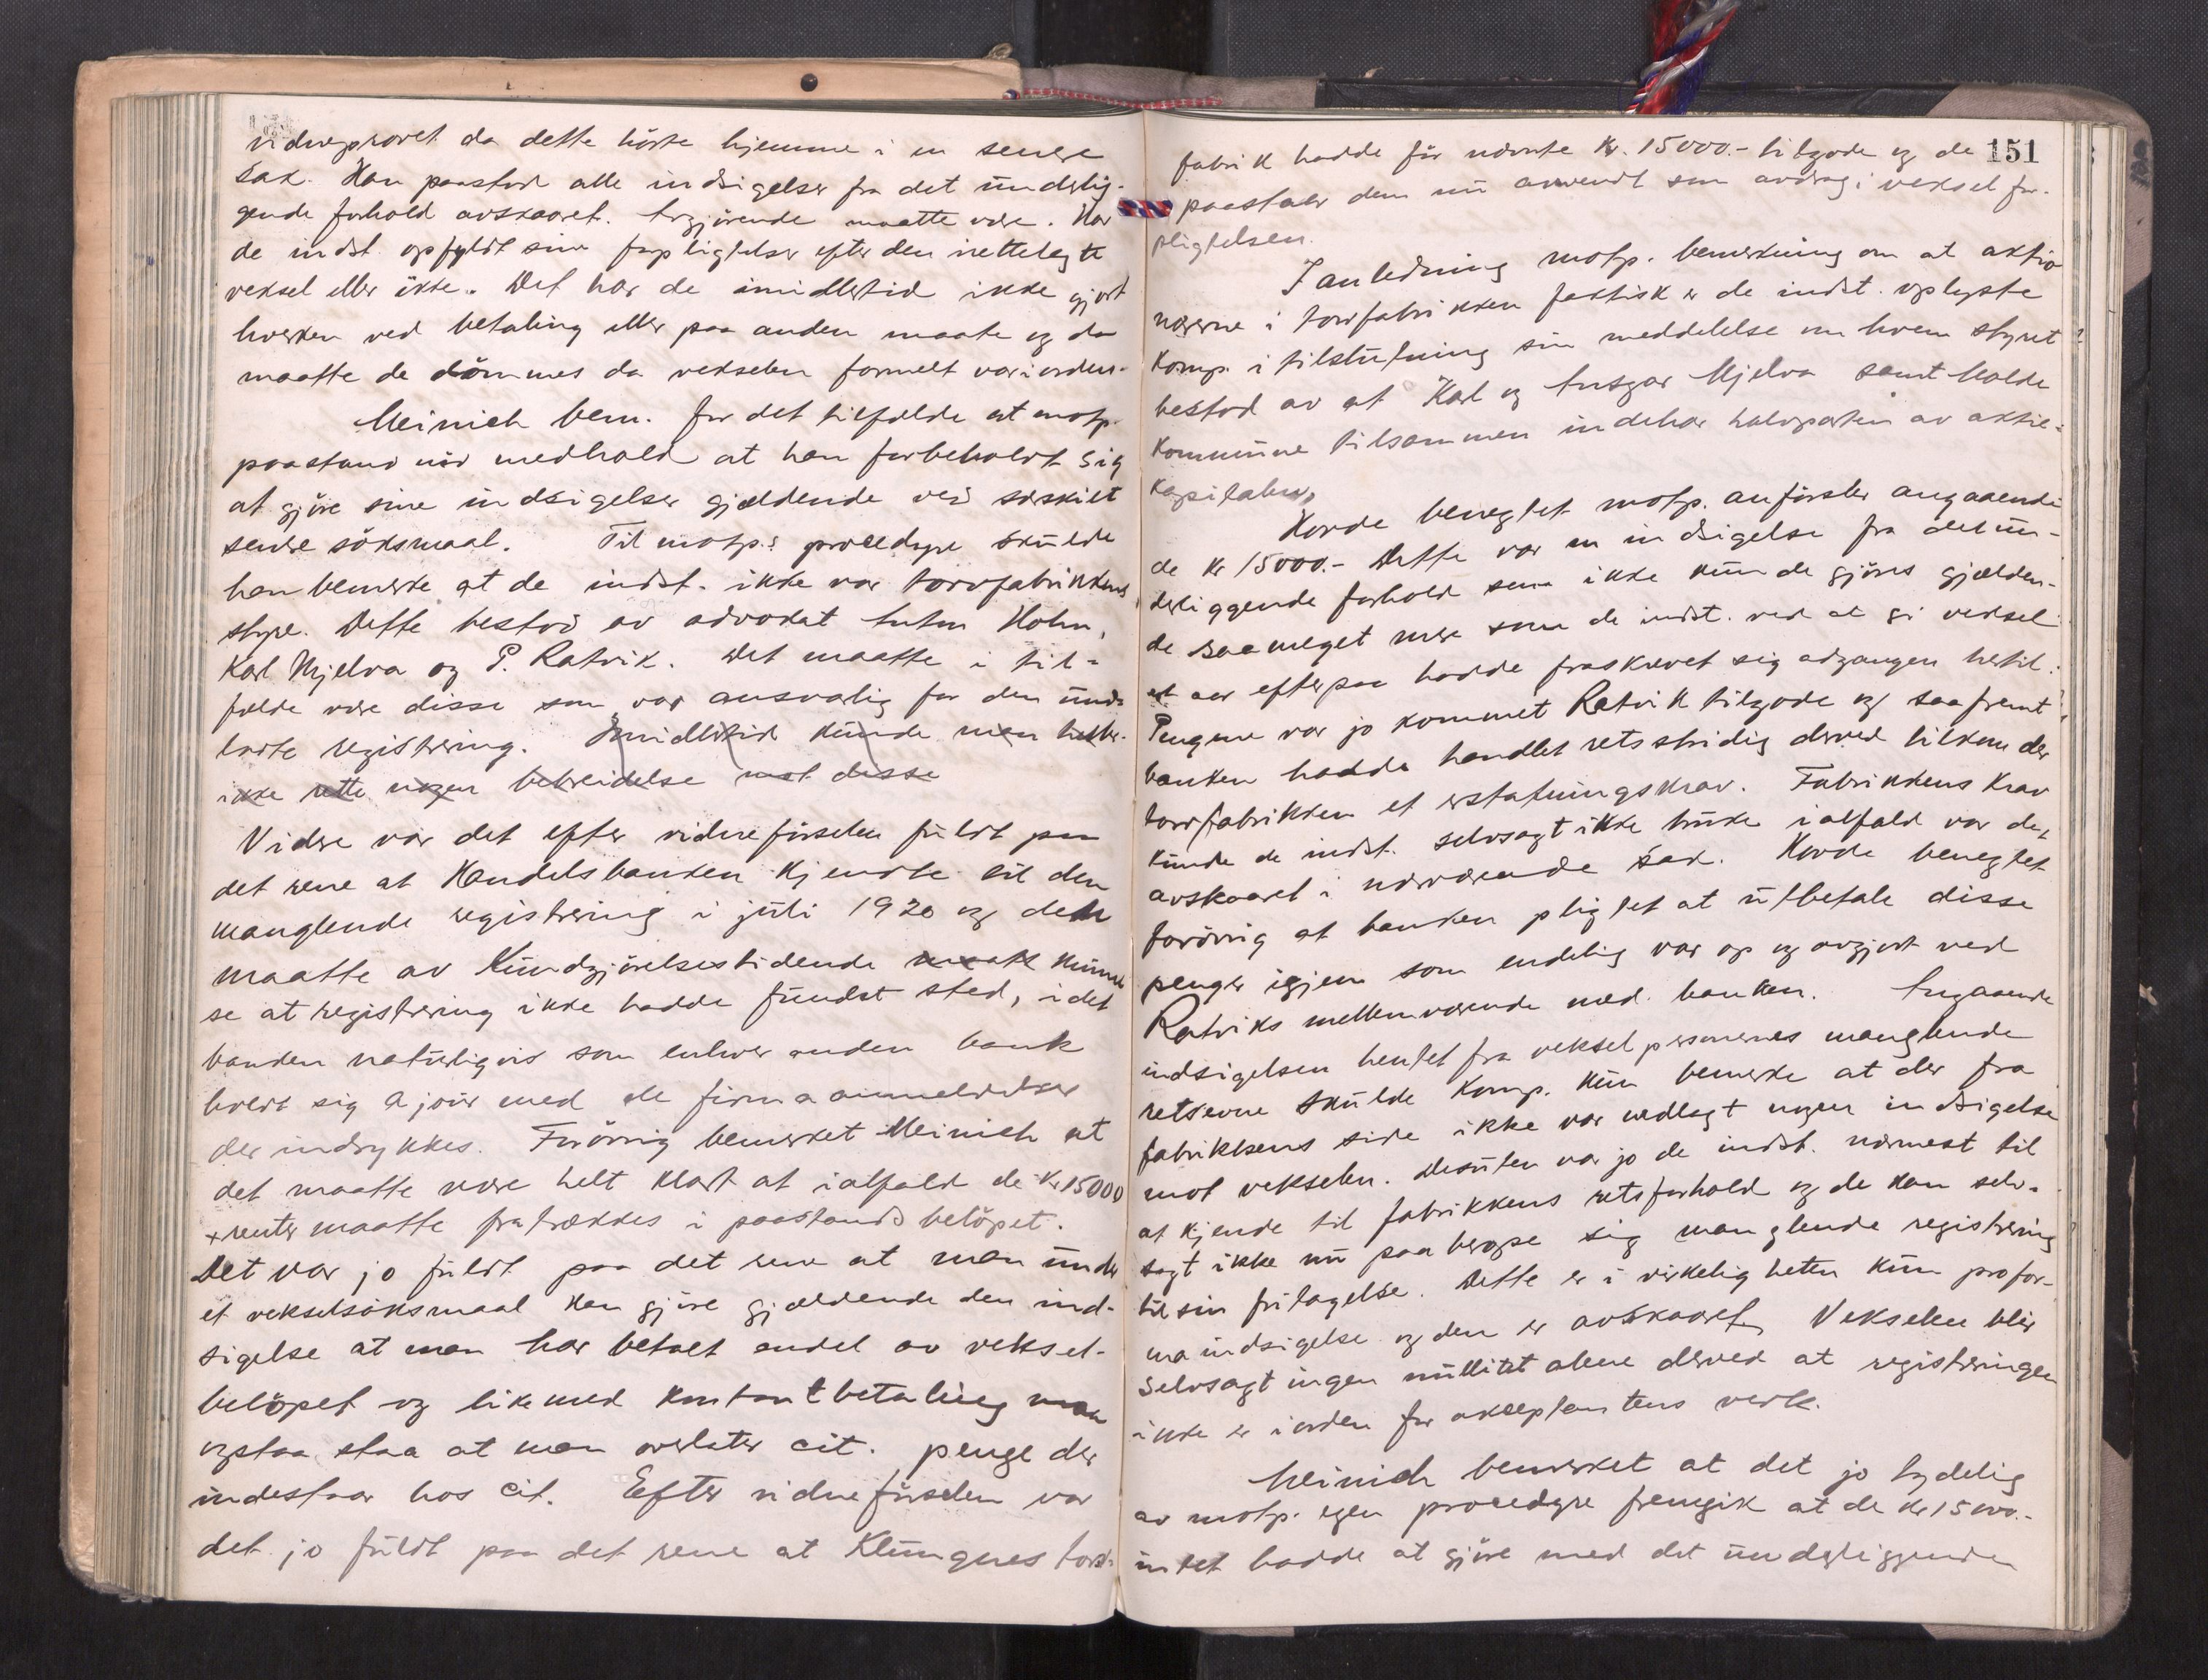 vidneprovet da dette hörte hjemme i en senere
sak. Han paastod alle indsigelser fra det underlig-
gende forhold avskaaret. Avgjörende maatte være. Har
de indst. opfyldt sine forpligtelser efter den rettelagte
veksel eller ikke. Det har de imidlertid ikke gjort
hverken ved betaling eller paa anden maate og da
maatte de dömmes da vekselen formelt var i orden.
Meinich bem. for det tilfælde at motp.
paastand nöd medhold at han forbeholdt sig
at gjöre sine indsigelser gjældende ved særskilt
senere söksmaal. Til motp.s procedyre skulde
han bemerke at de indst. ikke var torvfabrikkens
styre. Dette bestod av advokat Anton Holm,
Karl Mjelva og P. Ratvik. Det maatte i til-
fælde være disse som var ansvarlig for den und-
latte registrering. Imidlertid kunde man heller
ikke rette nogen bebreidelse mot disse
Videre var det efter vidneförselen fuldt paa
det rene at Handelsbanken kjendte til den
manglende registrering i juli 1920 og den
maatte av Kundgjörelsestidende maatte kunne
se at registrering ikke hadde fundet sted, idet
banken naturligvis som enhver anden bank
holdt sig a jour med de firmaanmeldelser
der indrykkes. Forövrig bemerket Meinich at
det maatte være helt klart at ialfald de Kr 15000
+ renter maatte fratrækkes i paastandsbelöpet.
Det var jo fuldt paa det rene at man under
et vekselsöksmaal kan gjöre gjældende den ind-
sigelse at man har betalt endel av veksel-
belöpet og like med kontant betaling maa
ogsaa staa at man overlater cit. penge der
indestaar hos cit. Efter vidneförselen var
det jo fuldt paa det rene at Klungnes torv-
151
fabrik hadde før nævnte Kr. 15000.- tilgode og de
paastaar dem nu anvendt som avdrag i veksel for-
pligtelsen.
I anledning motp. bemerkning om at aktio-
nærerne i torvfabrikken faktisk er de indst. oplyste
komp. i tilslutning sin meddelelse om hvem styret
bestod av at Karl og Ansgar Mjelva samt Molde
kommune tilsammen indehar halvparten av aktie-
kapitalen.
Horde benegtet motp. anförsler angaaende
de Kr 15000.- Dette var en indsigelse fra det un-
derliggende forhold som ikke kunde gjöres gjælden-
de saameget mere som de indst. ved at gi veksel
et aar efterpaa hadde fraskrevet sig adgangen hertil.
Pengene var jo kommet Ratvik tilgode og saafremt
banken hadde handlet retsstridig derved tilkom der
torvfabrikken et erstatningskrav. Fabrikkens krav
kunde de indst. selvsagt ikke bruke ialfald var det
avskaaret i nærværende sak. Horde benegtet
forövrig at banken pligtet at utbetale disse
penger igjen som endelig var op og avgjort ved
Ratviks mellemværende med banken. Angaaende
indsigelsen hentet fra vekselpersonernes manglende
retsevne skulde komp. kun bemerke at der fra
fabrikkens side ikke var nedlagt nogen indsigelse
mot vekselen. Desuten var jo de indst. nærmest til
at kjende til fabrikkens retsforhold og de kan selv-
sagt ikke nu paaberope sig manglende registrering
til sin fritagelse. Dette er i virkeligheten kun profor-
ma indsigelse og den er avskaaret. Vekselen blir
selvsagt ingen nullitet alene derved at registreringen
ikke er i orden for akseptantens verk.
Meinich bemerket at det jo tydelig
av motp. egen procedyre fremgik at de Kr 15000.-
intet hadde at gjöre med det underliggende